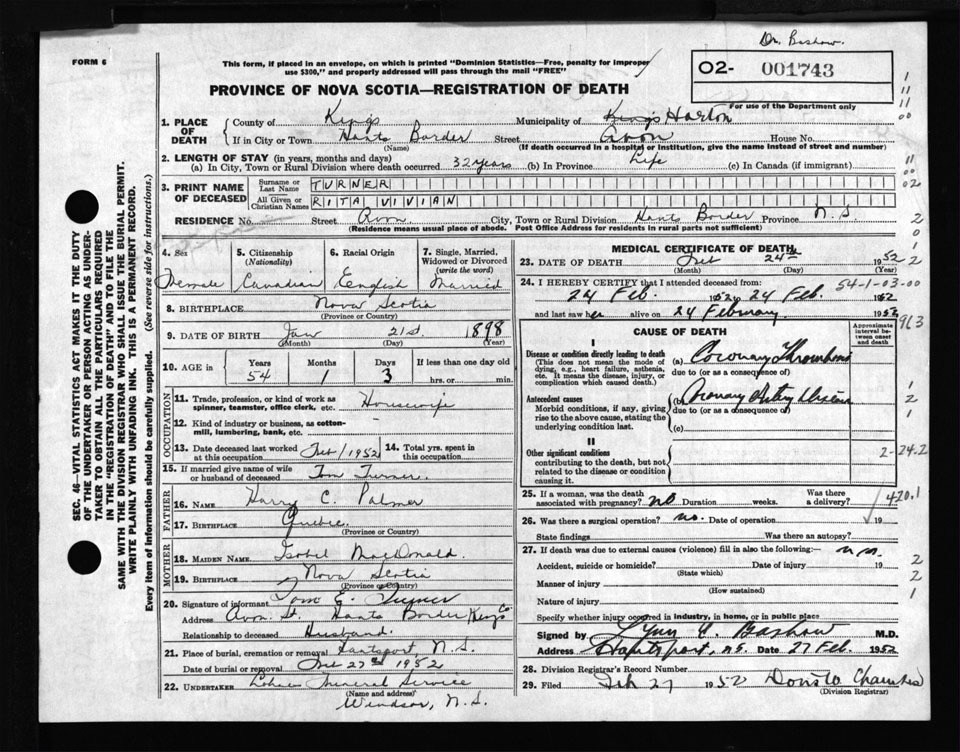 Dr. Bashow.
FORM 6
This form, if placed in an envelope, on which is printed "Dominion Statistics—Free, penalty for improper
use $300," and properly addressed will pass through the mail "FREE"
02- 001743
For use of the Department only
PROVINCE OF NOVA SCOTIA—REGISTRATION OF DEATH
1. PLACE OF DEATH
County of Kings Municipality of Kings Horton
If in City or Town Hants Border Street Avon House No.
(Name) (If death occurred in a hospital or institution, give the name instead of street and number)
2. LENGTH OF STAY (in years, months and days)
(a) In City, Town or Rural Division where death occurred 32 years (b) In Province Life (c) In Canada (if immigrant)
3. PRINT NAME OF DECEASED
Surname or Last Name TURNER
All Given or Christian Names RITA VIVIAN
RESIDENCE No. Street Avon City, Town or Rural Division Hants Border Province N.S.
(Residence means usual place of abode. Post Office Address for residents in rural parts not sufficient)
SEC. 46—VITAL STATISTICS ACT MAKES IT THE DUTY
OF THE UNDERTAKER OR PERSON ACTING AS UNDER-
TAKER TO OBTAIN ALL THE PARTICULARS REQUIRED
IN THE "REGISTRATION OF DEATH" AND TO FILE THE
SAME WITH THE DIVISION REGISTRAR WHO SHALL ISSUE THE BURIAL PERMIT.
WRITE PLAINLY WITH UNFADING INK. THIS IS A PERMANENT RECORD.
Every item of information should be carefully supplied. (See reverse side for instructions.)
4. Sex Female
5. Citizenship (Nationality) Canadian
6. Racial Origin English
7. Single, Married, Widowed or Divorced (write the word) Married
8. BIRTHPLACE Nova Scotia
(Province or Country)
9. DATE OF BIRTH Jan 21st. 1898
(Month) (Day) (Year)
10. AGE in Years 54 Months 1 Days 3 If less than one day old hrs. or min.
OCCUPATION
11. Trade, profession, or kind of work as
spinner, teamster, office clerk, etc. Housewife
12. Kind of industry or business, as cotton-
mill, lumbering, bank, etc.
13. Date deceased last worked at this occupation Feb/1952
14. Total yrs. spent in this occupation
15. If married give name of wife
or husband of deceased Tom Turner
FATHER
16. NAME Harry C. Palmer
17. BIRTHPLACE Quebec.
(Province or Country)
MOTHER
18. MAIDEN NAME Isobel MacDonald.
19. BIRTHPLACE Nova Scotia
(Province or Country)
20. Signature of informant Tom E. Turner
Address Avon St. Hants Border Kings Co.
Relationship to deceased Husband.
21. Place of burial, cremation or removal Hantsport, N.S.
Date of burial or removal Feb 27th 1952
22. UNDERTAKER Funeral Service
(Name and address)
Windsor, N.S.
MEDICAL CERTIFICATE OF DEATH
23. DATE OF DEATH Feb 24th 1952
(Month) (Day) (Year)
24. I HEREBY CERTIFY that I attended deceased from: 54-1-03-00
24 Feb. 1952 to 24 Feb. 1952
and last saw her alive on 24 February 1952
CAUSE OF DEATH
Approximate interval between onset and death
I
Disease or condition directly leading to death
(This does not mean the mode of
dying, e.g., heart failure, asthenia,
etc. It means the disease, injury, or
complication which caused death.)
(a) Coronary Thrombosis
due to (or as a consequence of)
Antecedent causes
Morbid conditions, if any, giving
rise to the above cause, stating the
underlying condition last.
(b) Coronary Artery Disease
due to (or as a consequence of)
(c)
II
Other significant conditions
contributing to the death, but not
related to the disease or condition
causing it.
2-24-2
25. If a woman, was the death
associated with pregnancy? no Duration weeks. Was there a delivery?
420.1
26. Was there a surgical operation? no. Date of operation 19
State findings Was there an autopsy?
27. If death was due to external causes (violence) fill in also the following:—
Accident, suicide or homicide? Date of injury 19
(State which)
Manner of injury
(How sustained)
Nature of injury
Specify whether injury occurred in industry, in home, or in public place
Signed by Bashow M.D.
Address Hantsport, N.S. Date 27 Feb. 1952
28. Division Registrar's Record Number
29. Filed Feb 27 1952
(Division Registrar)